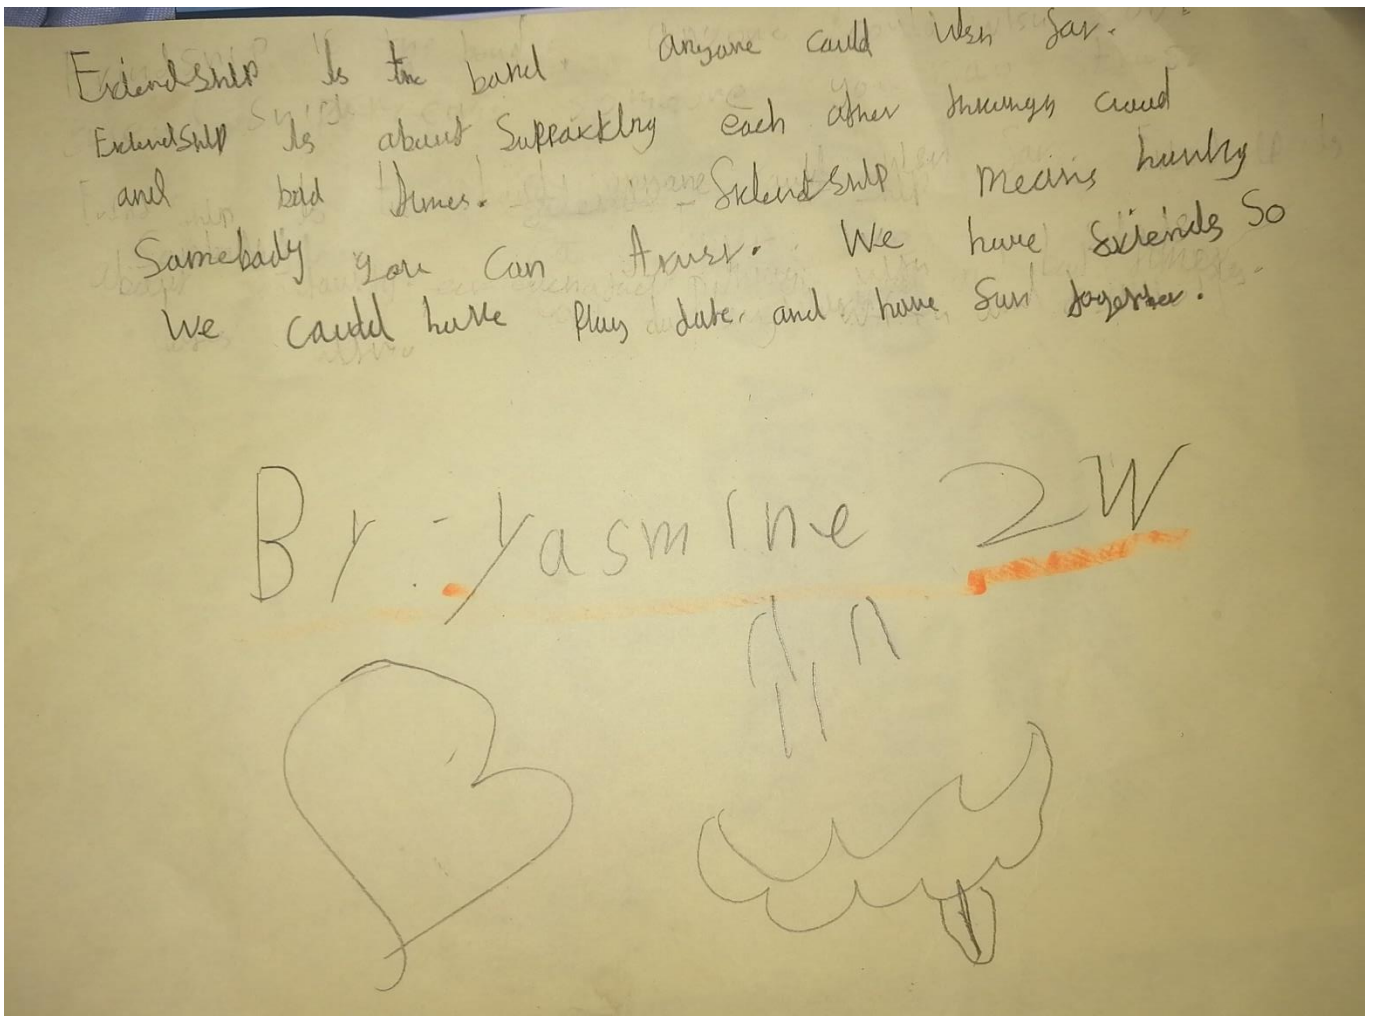 Friendship is the bond. anyone could wish for.
Friendship is about supporting each other through good
and bad times. Friendship means having
Somebody you can trust. We have friends So
We could have play date. and have fun together.
By: Yasmine 2W